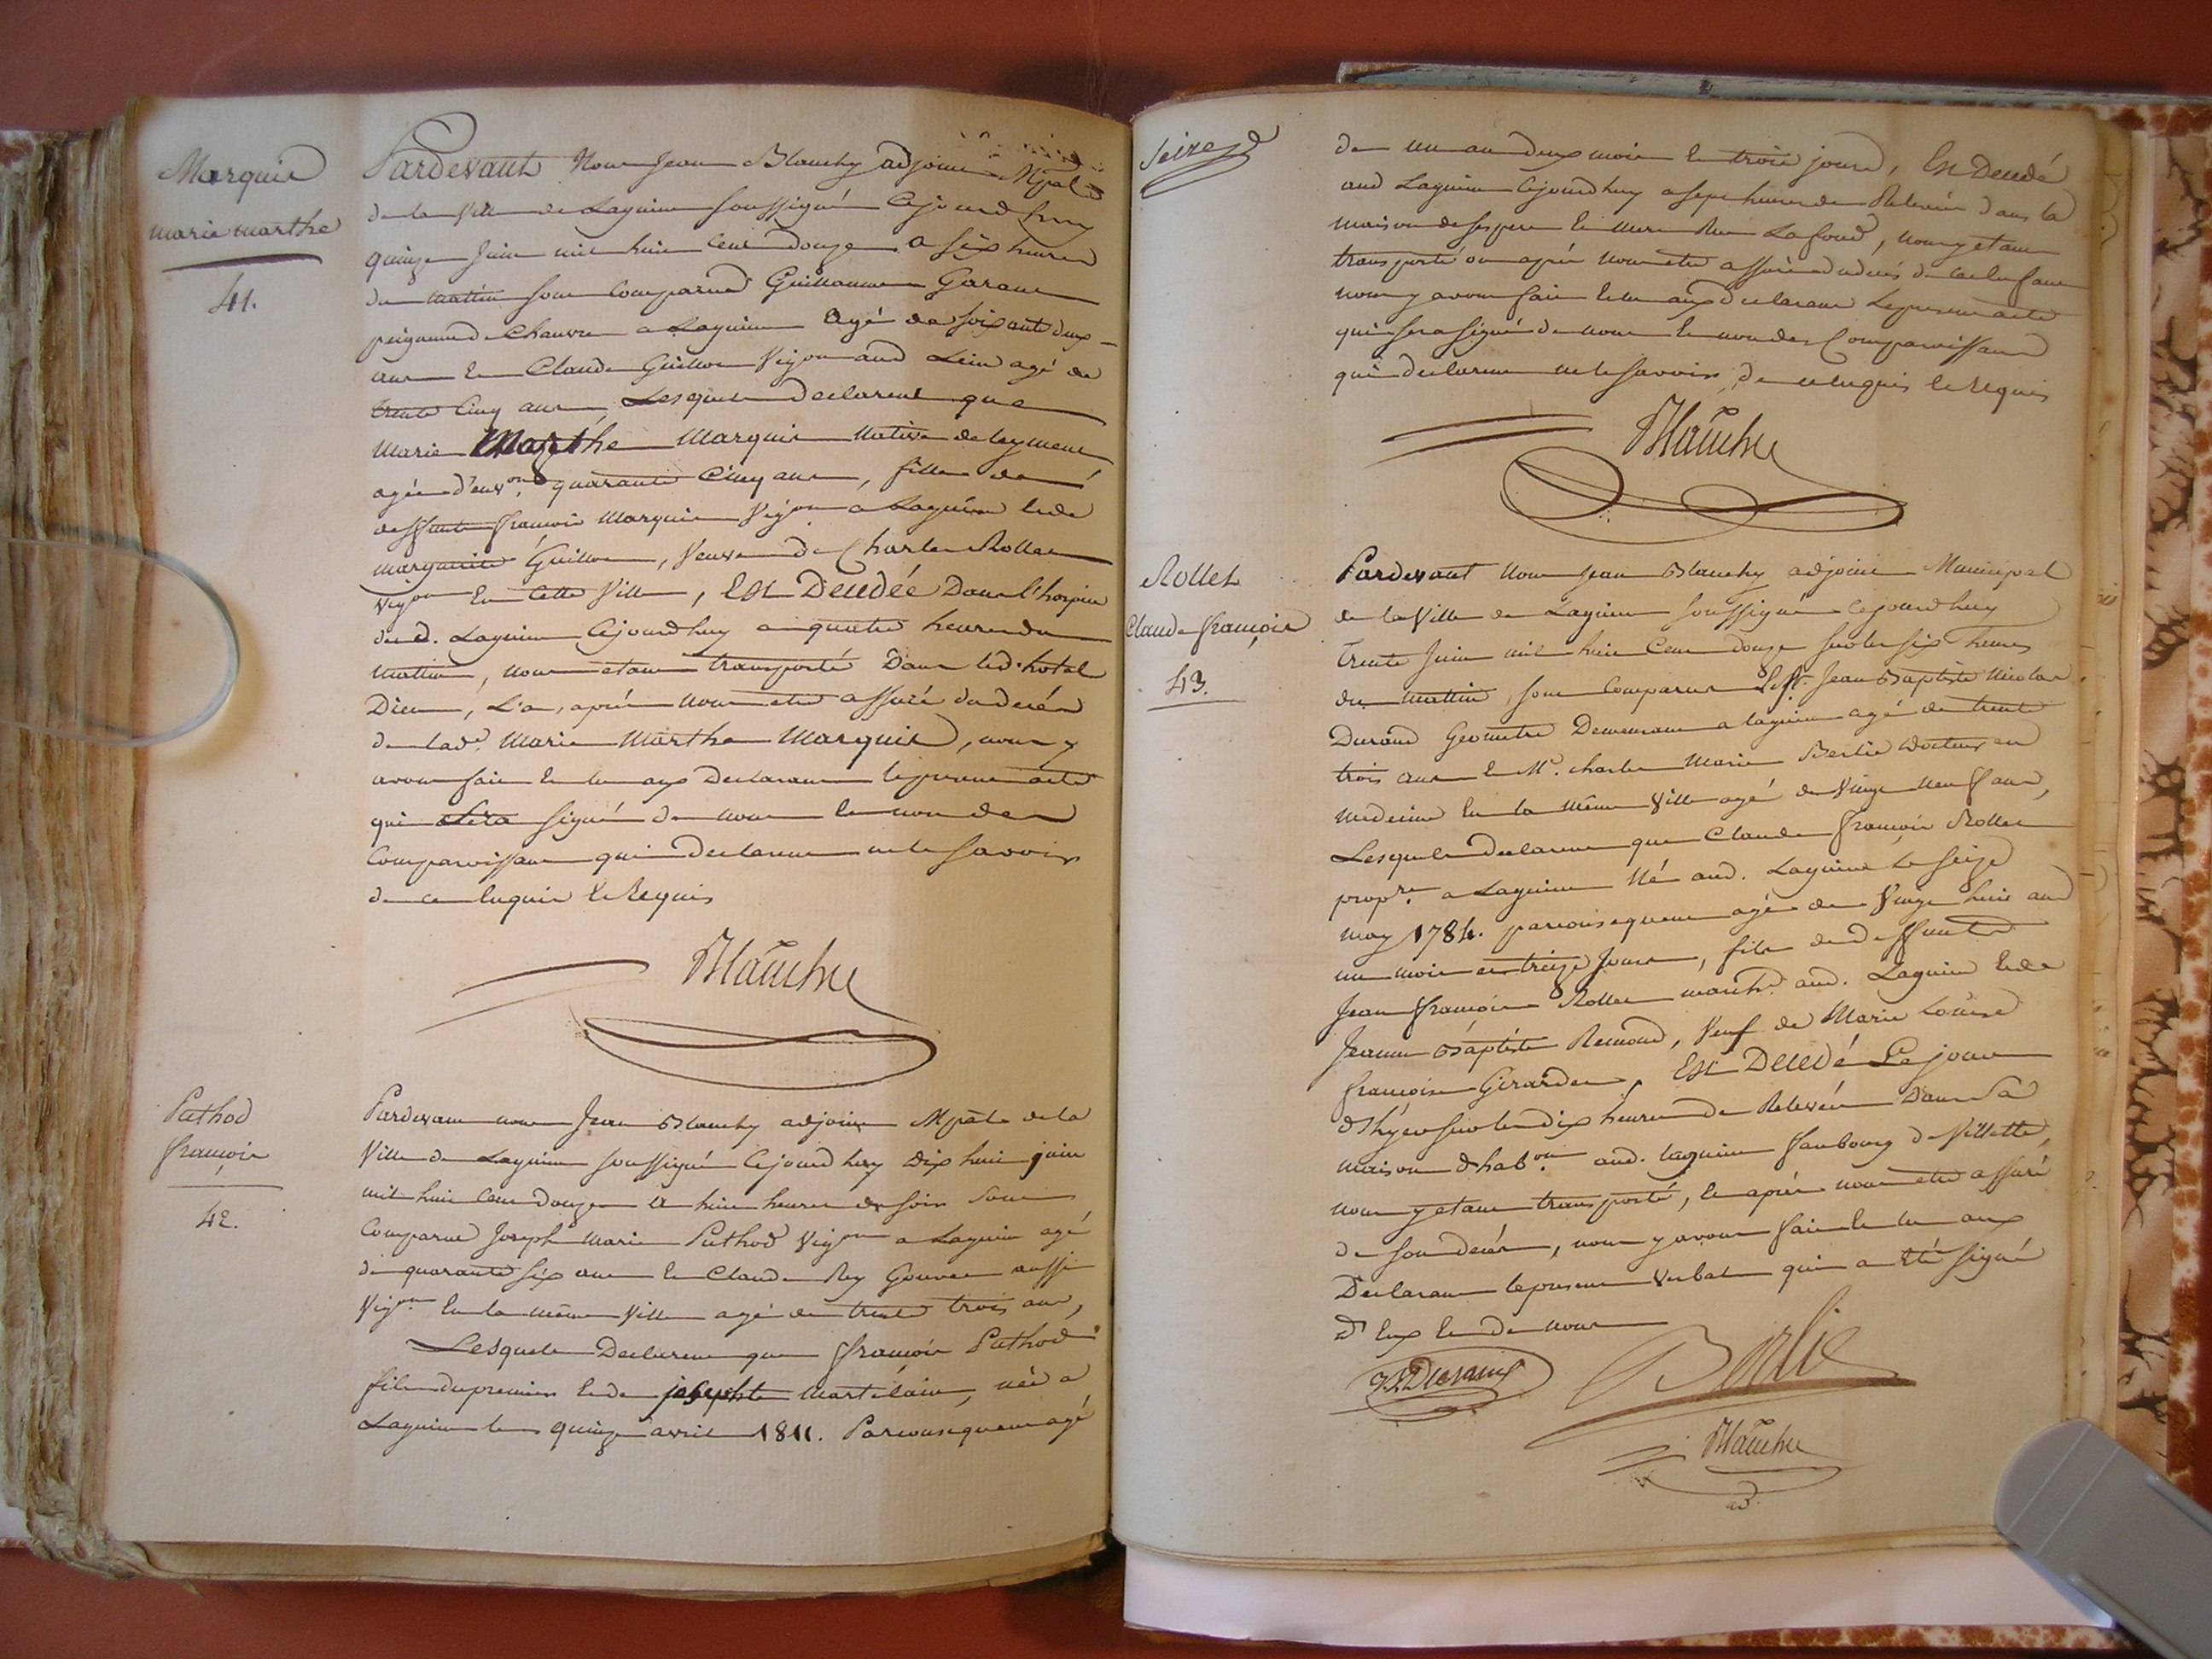 Marquis
marie marthe
41.
Pardevant Nous Jean Blanchy adjoint Mpal
de la Ville de Lagnieu soussigné Cejourd'huy
quinze Juin mil huit Cent douze a six heures
du matin sont Comparus Guillaume Garane
peigneur de Chanvre a Lagnieu agé de soixant deux
ans et Claude Guillon Vigon aud Lieu agé de
trente Cinq ans, Lesquels declarent que
Marie Marthe Marquis Native de leyment
agée d'envon quarante Cinq ans, fille de
deffunts françois Marquis Vigon a Lagnieu et de
marguerite Guillon, Veuve de Charles Rollet
vigon En Cette Ville, Est Decedée Dans l'hospice
dud. Lagnieu Cejourd'huy a quatre heures du
mattin, nous etant transporté Dans led. hotel
Dieu, La, aprés nous etre assuré du decés
de lade. Marie Marthe Marquis, nous y
avons fait et lu aux Declarants le present acte
qui Sera signé de nous et non des
Comparoissants qui declarent ne le savoir
de ce Enquis et Requis
Blanchy
Puthod
françois
42.
Pardevant nous Jean Blanchy adjoint Mpal de la
Ville de Lagnieu soussigné Cejourd'huy Dix huit juin
mil huit Cent douze a huit heures du soir sont
Comparus Joseph Marie Puthod Vigon a Lagnieu agé
de quarante six ans et Claude Rey Gouvet aussi
Vigon En la même Ville agé de trente trois ans,
Lesquels Declarent que françois Puthod
fils du premier et de josephte Martelain, né a
Lagnieu le quinze avril 1811. Par consequent agé
Seize
de un an deux mois et trois jours, Est Decedé
aud Lagnieu Cejourd'huy a sept heures de Relevée dans la
maison de ses pere et mere Rue Lafond, nous y etant
transporté ou aprés nous etre assuré du decés de cet Enfant
nous y avons fait et lu aux declarants le present acte
qui sera signé de nous et non des Comparoissants
qui declarent ne le savoir, de ce enquis et Requis
Blanchy
Rollet
Claude françois
43.
Pardevant Nous Jean Blanchy adjoint Municipal
de la Ville de Lagnieu soussigné cejourd'huy
trente Juin mil huit Cent douze sur les six heures
du mattin, sont Comparus Le Sr. Jean Baptiste Nicolas
Durand Geometre Demeurant a lagnieu agé de trente
trois ans et Mr. charles Marie Berlie docteur en
medecine En la même Ville agé de Vingt Neuf ans,
Lesquels declarent que Claude françois Rollet
propre a Lagnieu Né aud. Lagnieu le seize
may 1784. par consequent agé de Vingt huit ans
un mois et treize Jours, fils de deffunts
Jean françois Rollet marchd. aud. Lagnieu et de
Jeanne Baptiste Remond, Veuf de Marie Louise
françoise Girardet, Est Decedé Le jour
d'hyer sur les dix heures de Relevée dans Sa
maison d'habon aud. lagnieu faubourg de Villette,
nous y etant transporté, et aprés nous etre assuré
de son decés, nous y avons fait et lu aux
Declarants le present Verbal qui a été signé
d'Eux et de nous
Durand
Berlie
Blanchy
ad.